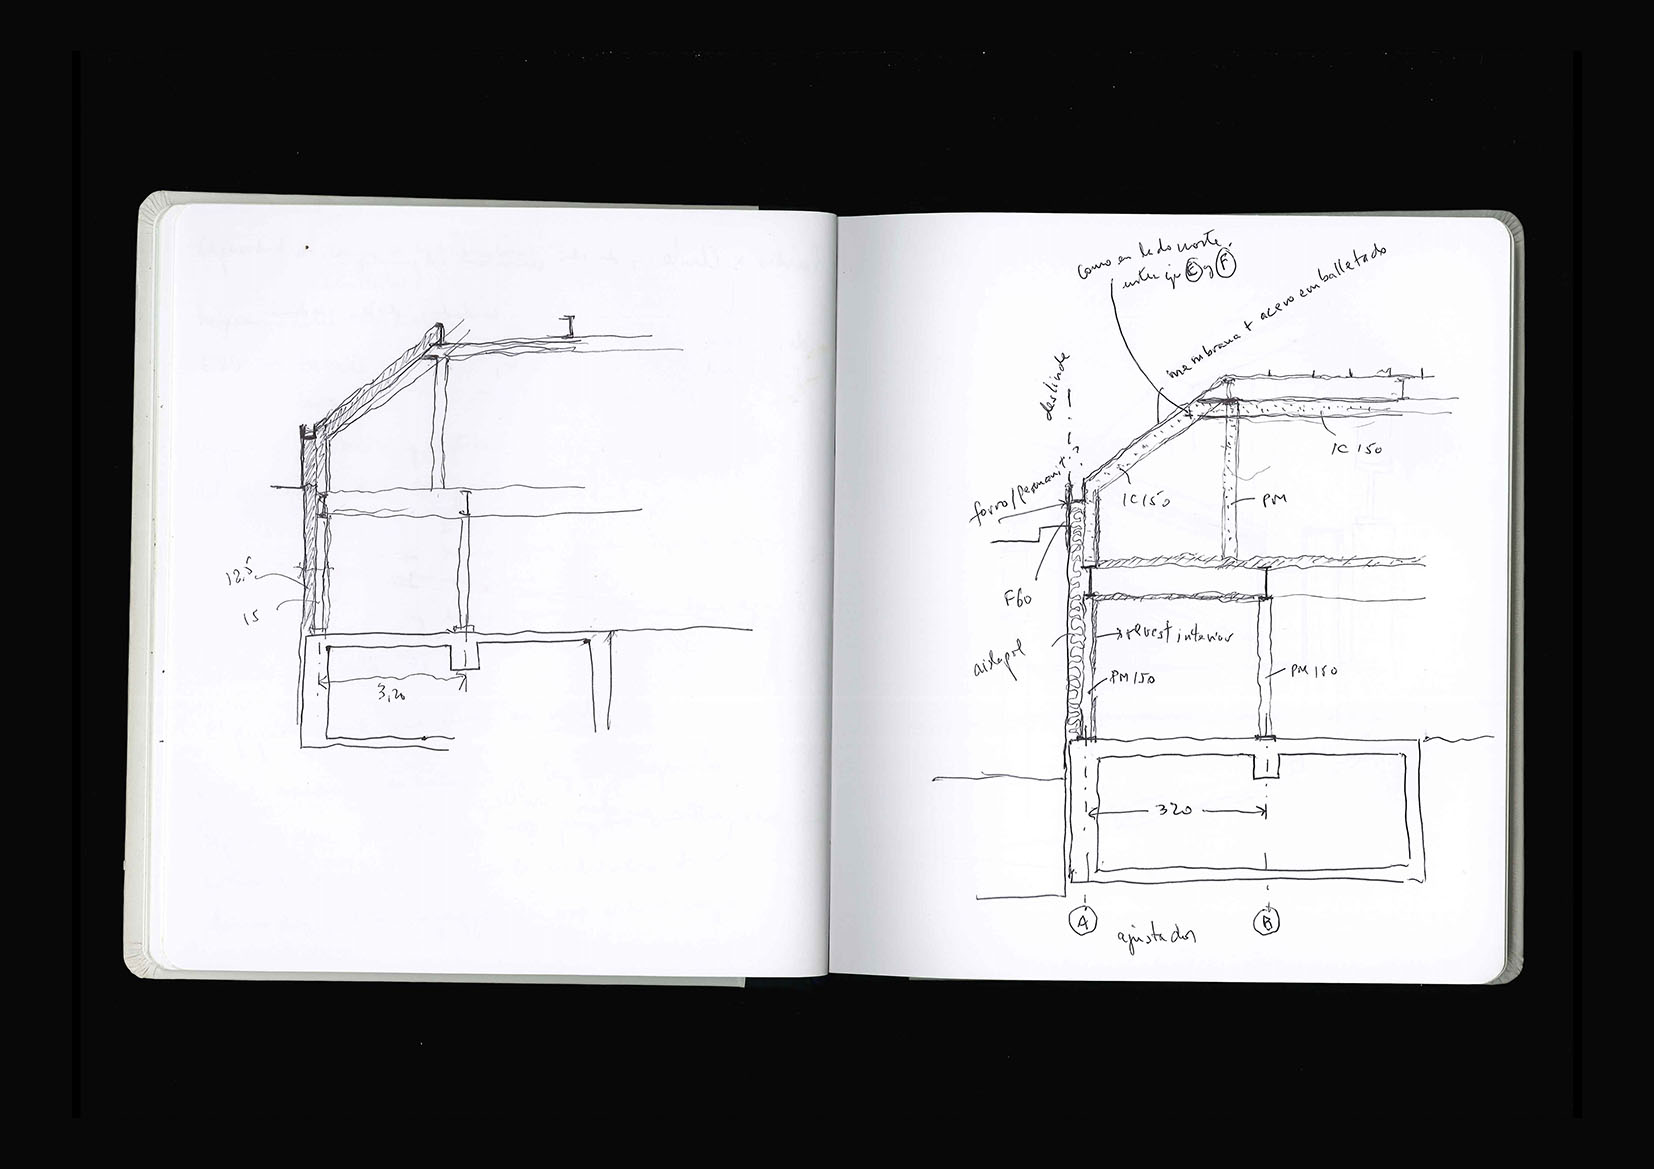 12,5
15
3,20
como en lado norte.
entre eje E y F
membrana + acero emballetado
deslinde
forro/permanit
IC 150
IC 150
PM
F60
aislapol
revest interior
PM 150
PM 150
320
A
B
ajustador